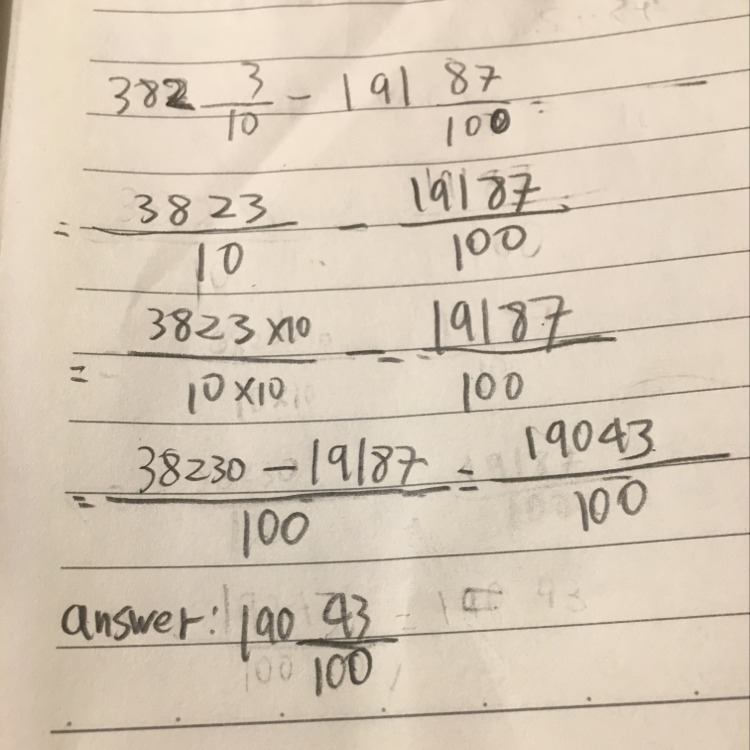 382 3/10 - 191 87/100 =
= 3823/10 - 19187/100
= 3823×10/10×10 - 19187/100
= 38230-19187/100 = 19043/100
answer: 190 43/100